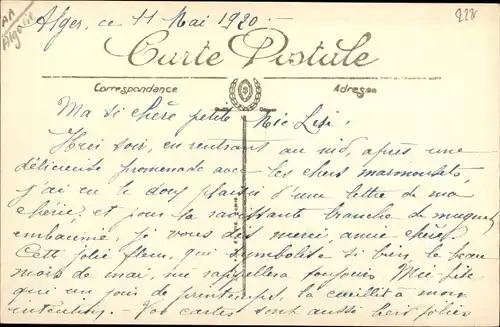 AA
Algérie
222
Alger, ce 11 Mai 1920.
Carte Postale
Correspondance
Adresse
Ma si chère petite Mie-Lisi.
Hier soir, en rentrant au nid, après une
délicieuse promenade avec les chers marmousets,
j'ai eu le doux plaisir d'une lettre de ma
chérie, et pour sa ravissante branche de muguet
embaumé, je vous dis merci, amie chère.
Cette jolie fleur, qui symbolise si bien, le beau
mois de mai, me rappellera toujours
qui un jour de printemps, la cueillit à mon
intention. Vos cartes sont aussi très jolies